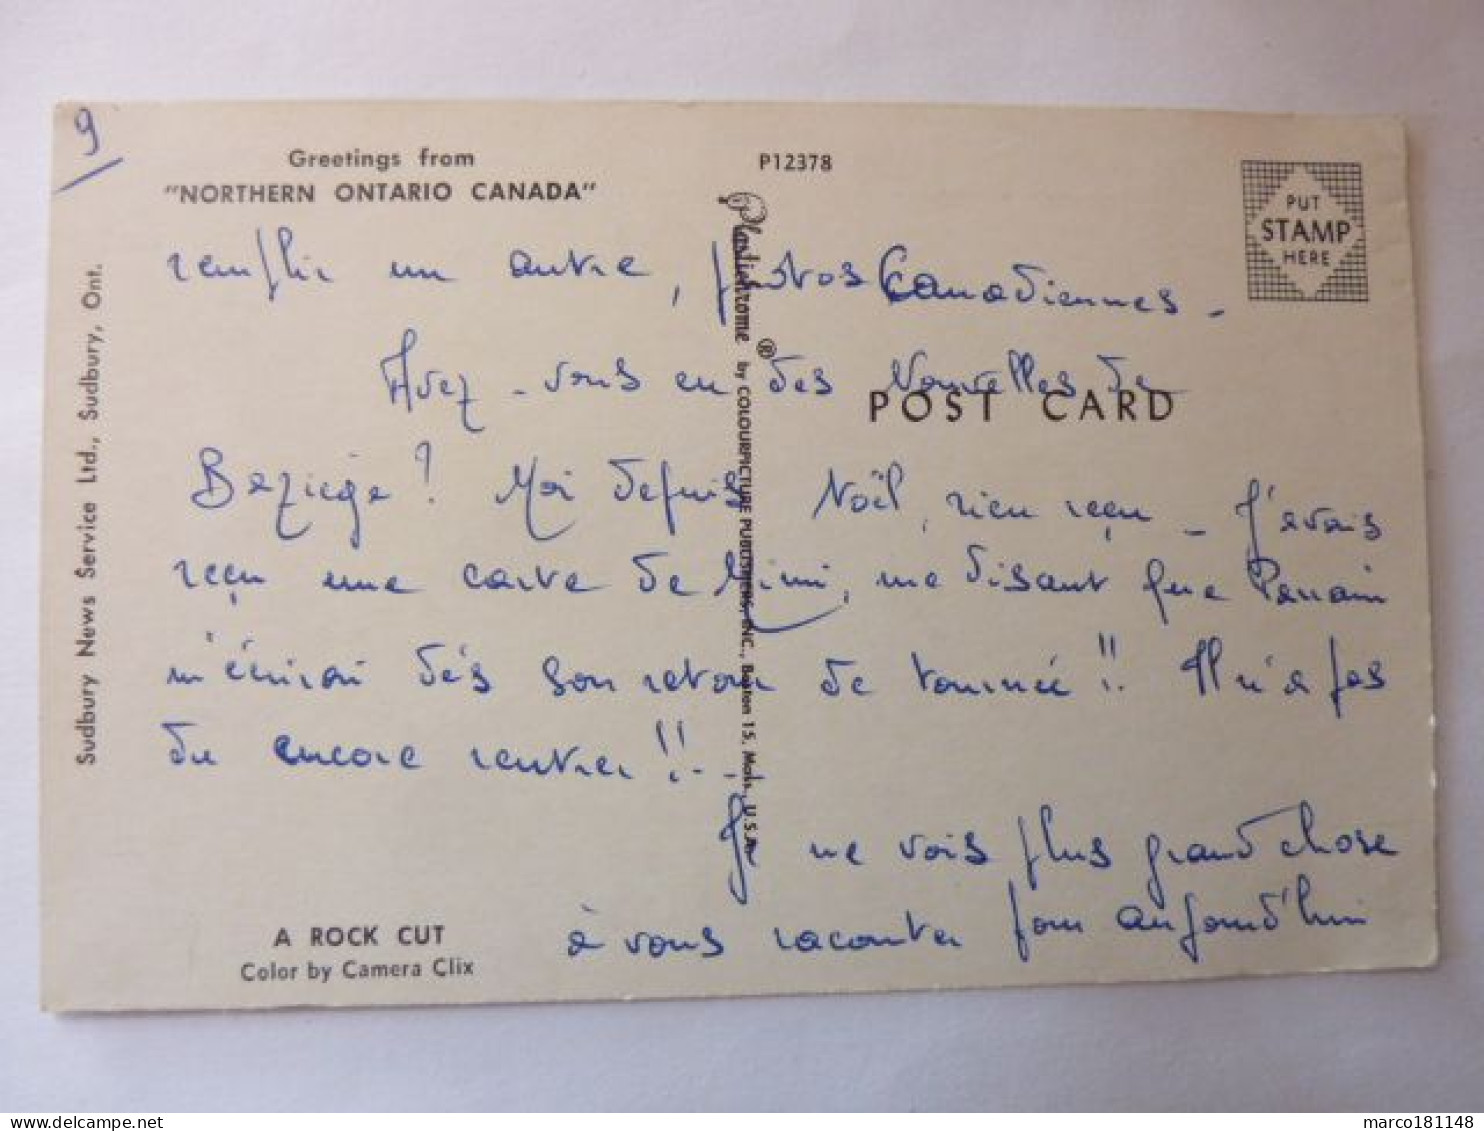 9
Greetings from
"NORTHERN ONTARIO CANADA"
P12378
PUT
STAMP
HERE
remplir un autre, photos Canadiennes -
Avez-vous eu des Nouvelles de
POST CARD
Baziège? Moi depuis Noël, rien reçu - J'avais
reçu une carte de Mimi, me disant que Parrain
m'écrirai dés son retour de tournée!! Il n'a pas
du encore rentrer!!..
Je ne vois plus grand chose
à vous raconter pour aujourd'hui
A ROCK CUT
Color by Camera Clix
Sudbury News Service Ltd., Sudbury, Ont.
Plastichrome ® by COLOURPICTURE PUBLISHERS, INC., Boston 15, Mass., U.S.A.
delcampe.net
marco181148